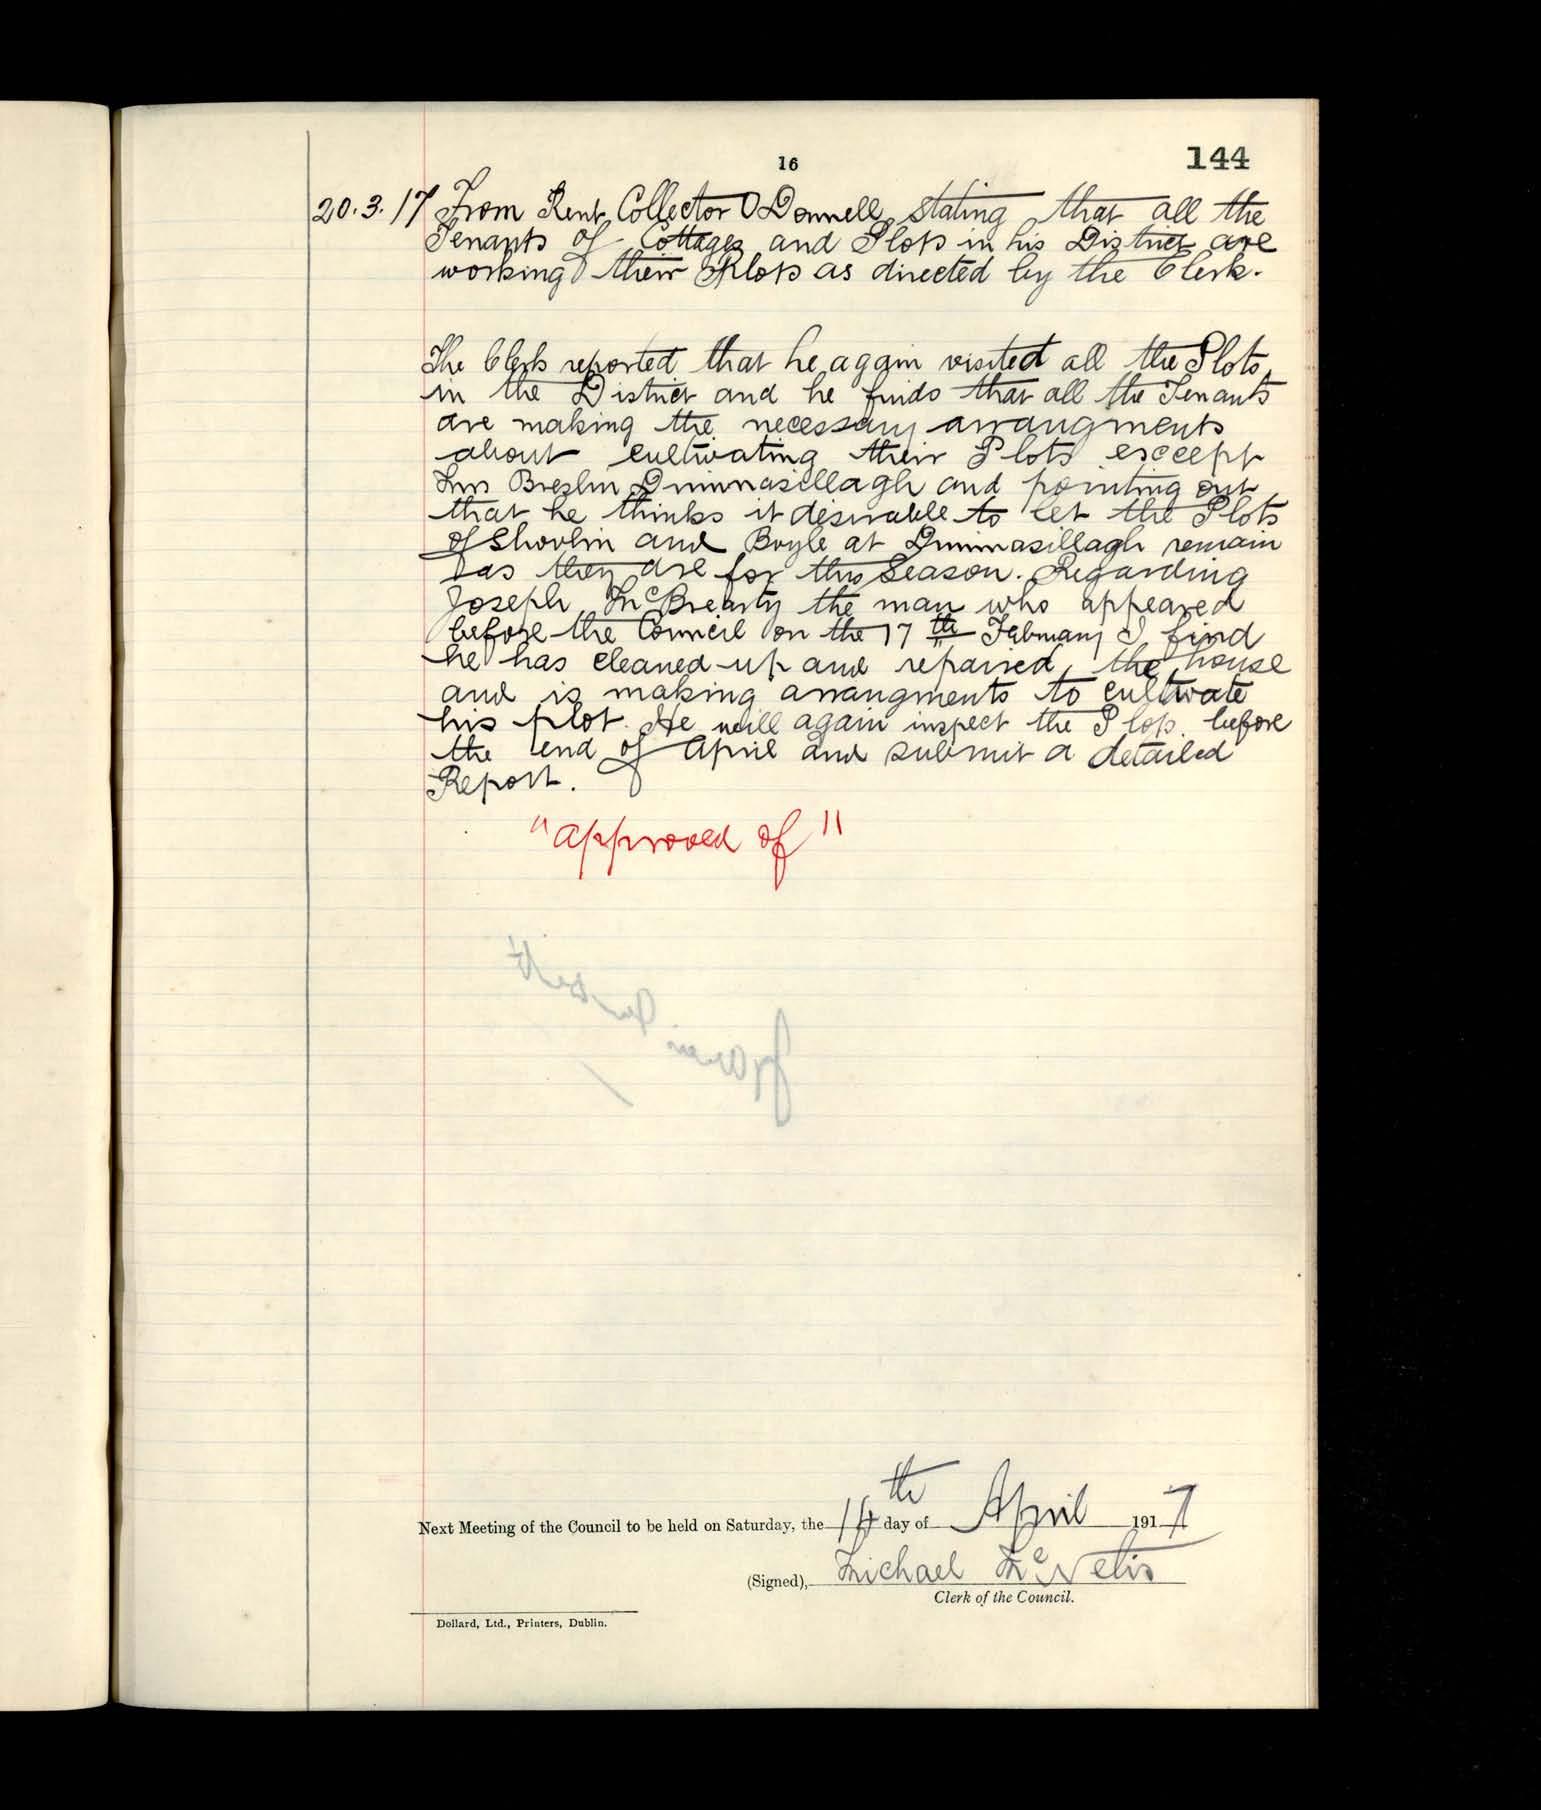 16
144
20.3.17 From Rent Collector O'Donnell stating that all the
Tenants of Cottages and Plots in his District are
working their Plots as directed by the Clerk.
The Clerk reported that he again visited all the Plots
in the District and he finds that all the Tenants
are making the necessary arrangments
about cultivating their Plots except
Breslin Drimnasillagh and pointing out
that he thinks it desirable to let the Plots
of Shovlin and Boyle at Drimnasillagh remain
as they are for this Season. Regarding
Joseph McBrearty the man who appeared
before the Council on the 17th February I find
he has cleaned up and repaired the house
and is making arrangments to cultivate
his plot. He will again inspect the Plots before
the end of April and submit a detailed
Report.
"approved of"
Next Meeting of the Council to be held on Saturday, the 14th day of April 1917
(Signed), Michael McNelis
Clerk of the Council.
Dollard, Ltd., Printers, Dublin.